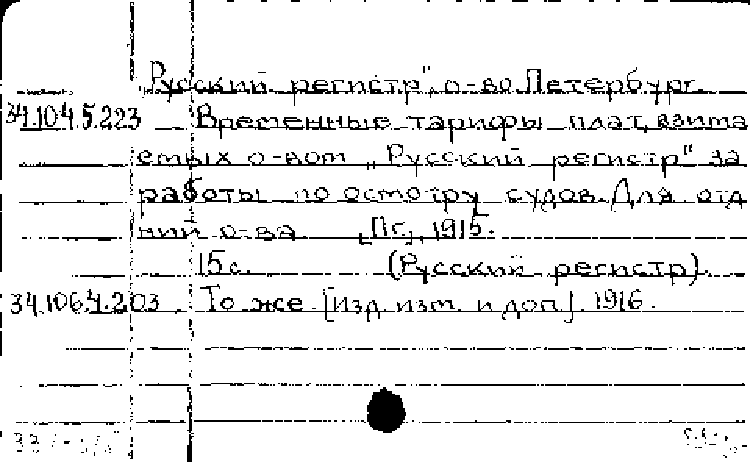 „Русский регистр", о-во. Петербург.
34.104.5.223 Временные тарифы плат, взима
емых о-вом „Русский регистр" за
работы по осмотру судов. Для отд
ний о-ва [Пг], 1915.
15 с. (Русский регистр).
34.106.4.203. То же. [изд. изм. и доп.]. 1916.